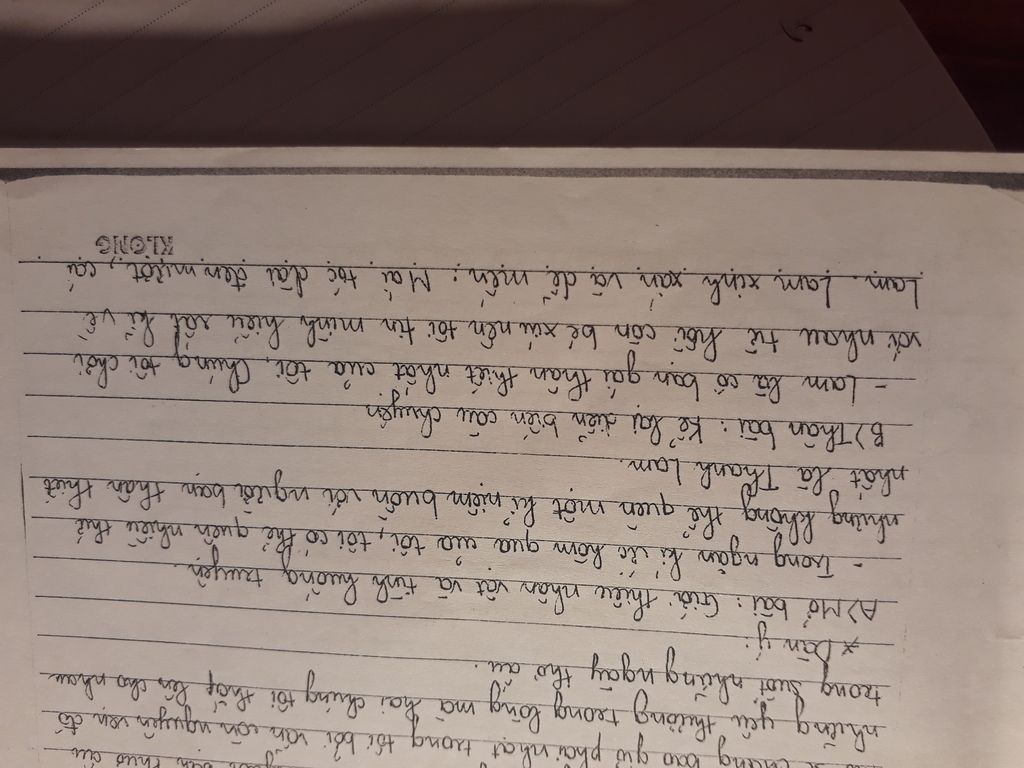 chẳng bao giờ phai nhạt trong tôi bởi vẫn còn nguyên vẹn đó
những yêu thương trong lòng mà hai chúng tôi thắp lên cho nhau
trong suốt những ngày thơ ấu.
* Dàn ý:
A) Mở bài: Giới thiệu nhân vật và tình huống truyện.
- Trong ngăn kí ức hôm qua của tôi, tôi có thể quên nhiều thứ
nhưng không thể quên một kỉ niệm buồn với người bạn thân thiết
nhất là Thanh Lam.
B) Thân bài: Kể lại diễn biến câu chuyện
- Lam là cô bạn gái thân thiết nhất của tôi. Chúng tôi chơi
với nhau từ hồi còn bé xíu nên tôi tin mình hiểu rất kĩ về
Lam. Lam xinh xắn và dễ mến: Mái tóc dài đen mượt, cái
KLONG